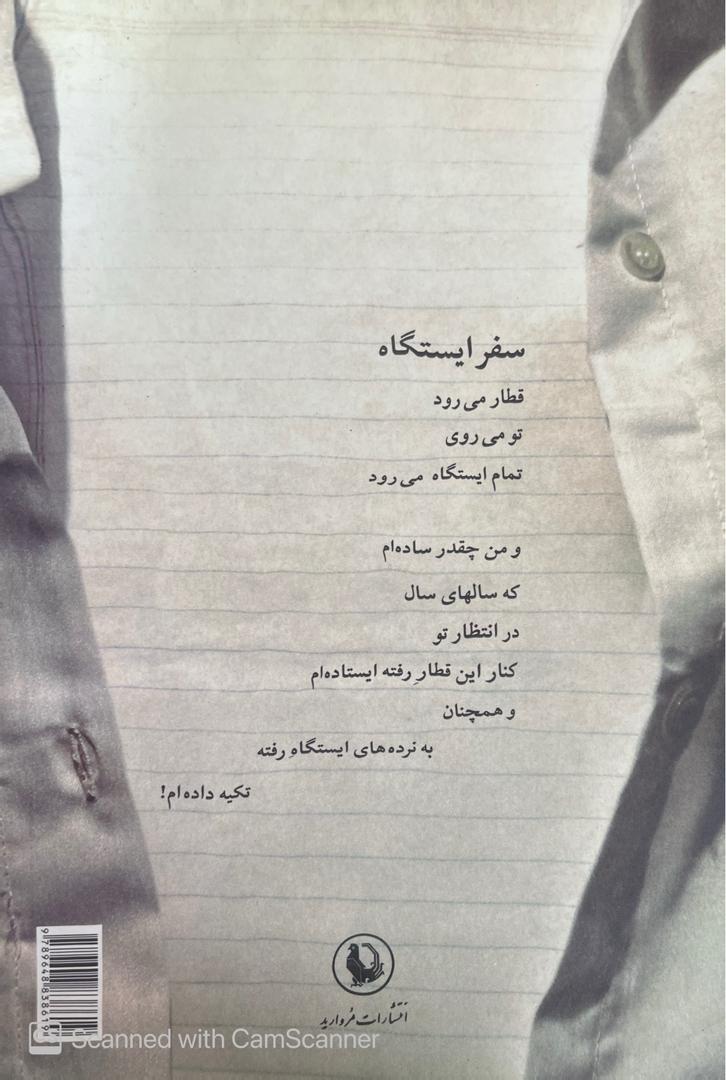 سفر ایستگاه
قطار می‌رود
تو می‌روی
تمام ایستگاه می‌رود
و من چقدر ساده‌ام
که سالهای سال
در انتظار تو
کنار این قطارِ رفته ایستاده‌ام
و همچنان
به نرده‌های ایستگاهِ رفته
تکیه داده‌ام!
انتشارات مروارید
Scanned with CamScanner